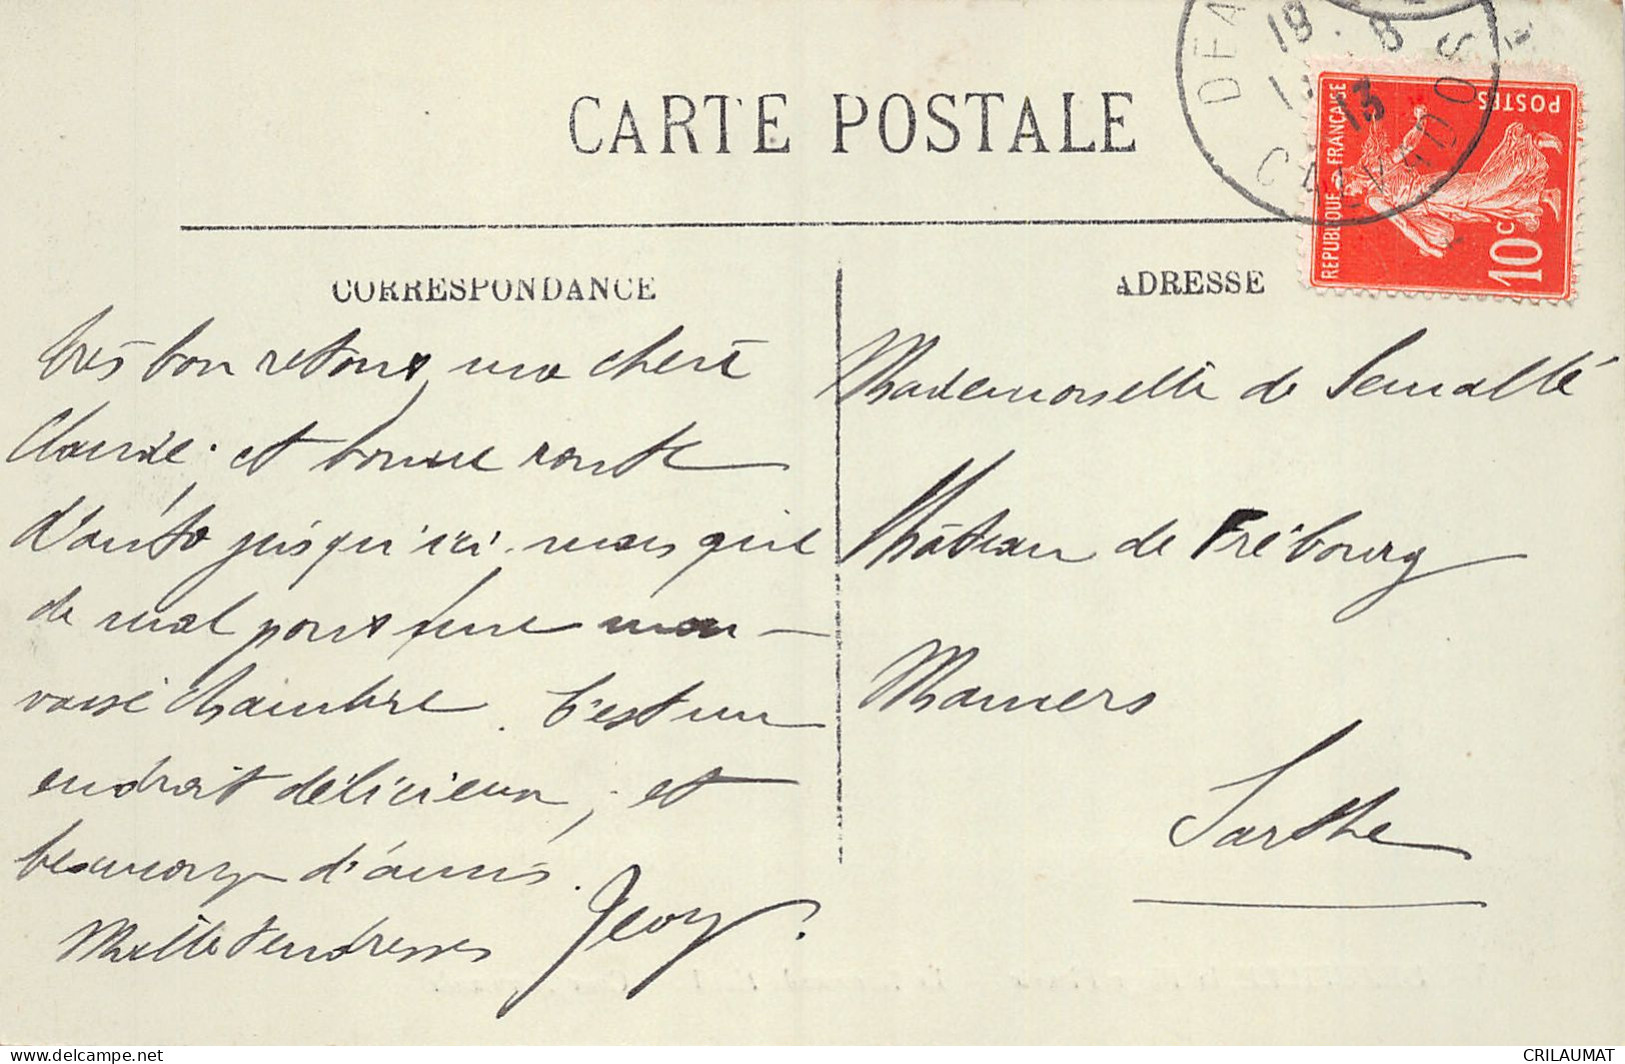 CARTE POSTALE
DEA
CALVADOS
18 8
13
RÉPUBLIQUE FRANÇAISE
POSTES
10 c
CORRESPONDANCE
très bon retour, ma chère
Claude, et bonne route
d'auto jusqu'ici, mais que
de mal pour une mau-
vaise chambre. C'est un
endroit délicieux, et
beaucoup d'amis.
Mille tendresses
ADRESSE
Mademoiselle de Semallé
Château de Frébourg
Mamers
Sarthe
CRILAUMAT